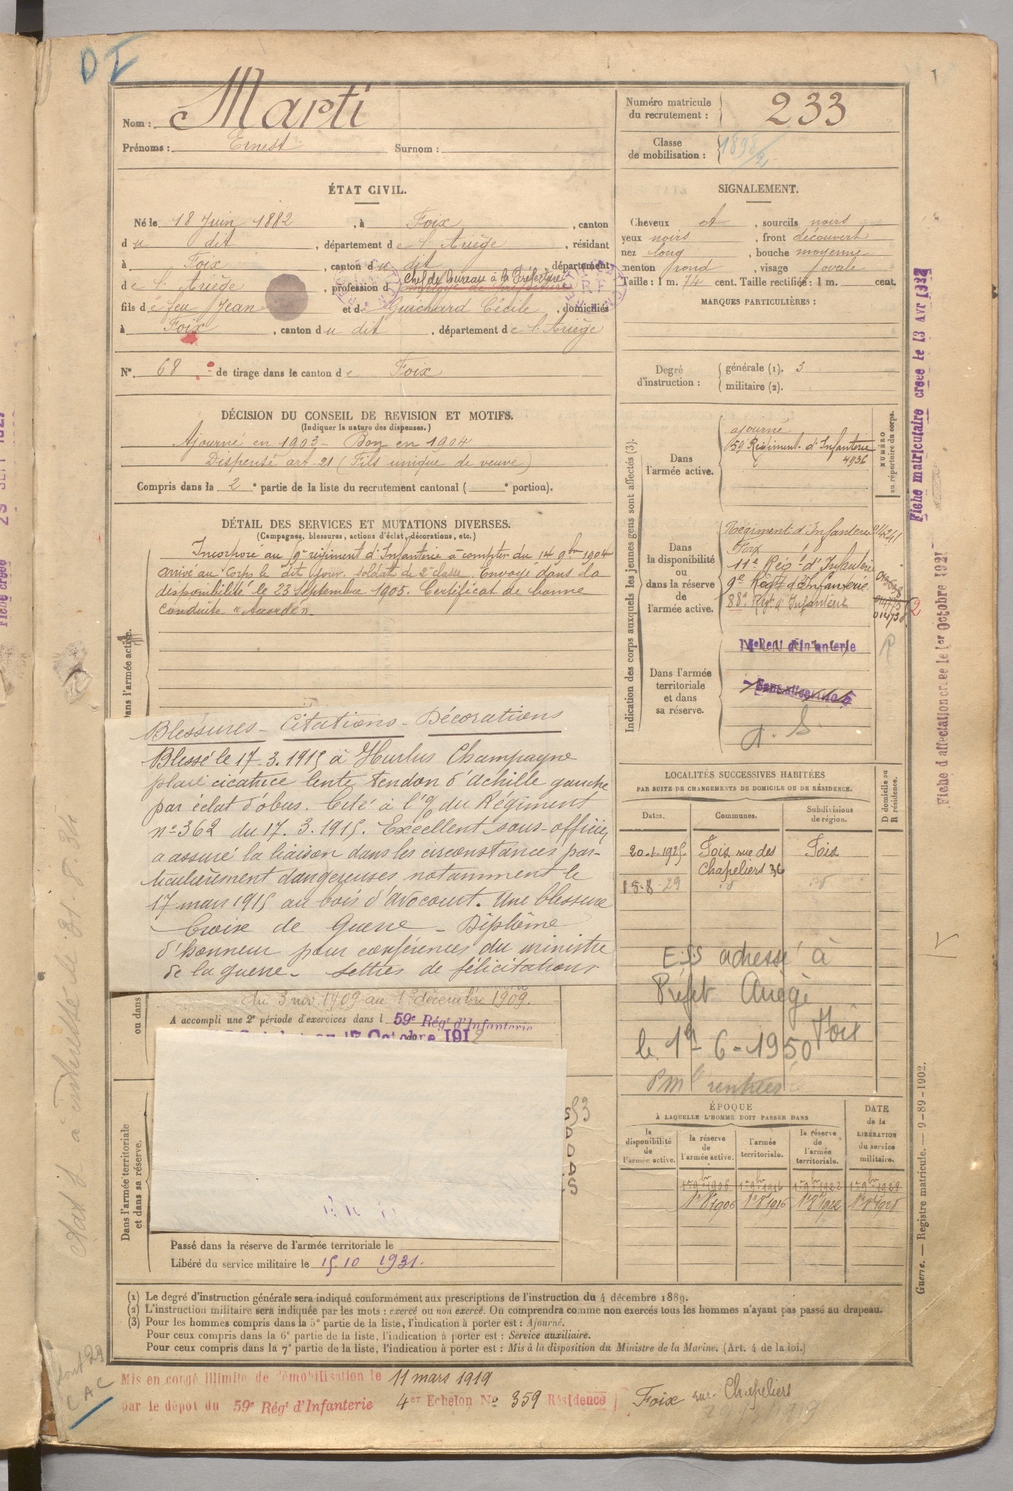 DI
1
Nom : Marti
Prénoms : Ernest Surnom :
Numéro matricule du recrutement : 233
Classe de mobilisation :
ÉTAT CIVIL.
Né le 18 Juin 1882, à Foix, canton
du dit, département de l'Ariège, résidant
à Foix, canton du dit, département
Chef de bureau à la Préfecture
de l'Ariège, profession d
fils de feu Jean et de Guichard Cécile, domiciliés
à Foix, canton du dit, département de l'Ariège
N° 68 de tirage dans le canton de Foix
SIGNALEMENT.
Cheveux et, sourcils noirs
yeux noirs, front découvert
nez long, bouche moyenne
menton rond, visage ovale
Taille : 1 m. 74 cent. Taille rectifiée : 1 m. cent.
MARQUES PARTICULIÈRES :
Degré d'instruction : générale (1). 3
militaire (2).
DÉCISION DU CONSEIL DE REVISION ET MOTIFS.
(Indiquer la nature des dispenses.)
Ajourné en 1903 - Bon en 1904
Dispensé art. 21 (Fils unique de veuve)
Compris dans la 2e partie de la liste du recrutement cantonal ( portion).
DÉTAIL DES SERVICES ET MUTATIONS DIVERSES.
(Campagnes, blessures, actions d'éclat, décorations, etc.)
Incorporé au 9e régiment d'Infanterie à compter du 14 9bre 1904
arrivé au Corps le dit jour. soldat de 2e classe. Envoyé dans la
disponibilité le 23 Septembre 1905. Certificat de bonne
conduite « Accordé ».
Dans l'armée active.
Blessures - Citations - Décorations
Blessé le 17.3.1915 à Hurlus Champagne
plaie cicatrice lente, tendon d'Achille gauche
par éclat d'obus. Cité à l'o/ du Régiment
n° 362 du 17.3.1915. Excellent sous-officier
a assuré la liaison dans les circonstances par-
ticulièrement dangereuses notamment le
17 mars 1915 au bois d'Avocourt. Une blessure
Croix de Guerre - Diplôme
d'honneur pour conférences du ministre
de la guerre - lettres de félicitations
du 3 nov. 1909 au 1er décembre 1909.
A accompli une 2e période d'exercices dans l 59e Régt d'Infanterie
17 Octobre 1912
ou dans
Dans l'armée territoriale et dans sa réserve.
Passé dans la réserve de l'armée territoriale le
Libéré du service militaire le 15.10 1931.
Indication des corps auxquels les jeunes gens sont affectés (3).
NUMÉRO au répertoire du corps.
Dans l'armée active.
ajourné
59 Régiment d'Infanterie
4936
Dans la disponibilité ou dans la réserve de l'armée active.
Régiment d'Infanterie
Foix
11e Régt d'Infanterie
9e Régt d'Infanterie
88e Régt d'Infanterie
2
Dans l'armée territoriale et dans sa réserve.
Sans affectation
LOCALITÉS SUCCESSIVES HABITÉES
PAR SUITE DE CHANGEMENTS DE DOMICILE OU DE RÉSIDENCE.
D domicile ou R résidence.
Dates. Communes. Subdivisions de région.
20-1-1925 Foix rue des Chapeliers 36 Foix
15-8-29
adressé à
Préfet Ariège
Foix
le 1-6-1950
ÉPOQUE
À LAQUELLE L'HOMME DOIT PASSER DANS
DATE de la LIBÉRATION du service militaire.
la disponibilité de l'armée active.
la réserve de l'armée active.
l'armée territoriale.
la réserve de l'armée territoriale.
(1) Le degré d'instruction générale sera indiqué conformément aux prescriptions de l'instruction du 4 décembre 1889.
(2) L'instruction militaire sera indiquée par les mots : exercé ou non exercé. On comprendra comme non exercés tous les hommes n'ayant pas passé au drapeau.
(3) Pour les hommes compris dans la 5e partie de la liste, l'indication à porter est : Ajourné.
Pour ceux compris dans la 6e partie de la liste, l'indication à porter est : Service auxiliaire.
Pour ceux compris dans la 7e partie de la liste, l'indication à porter est : Mis à la disposition du Ministre de la Marine. (Art. 4 de la loi.)
Mis en congé illimité de démobilisation le 11 mars 1919
par le dépôt du 59e Régt d'Infanterie 4er Echelon No 359 Résidence Foix rue Chapeliers
CAC
Fiche matriculaire créée le 13 Avr 1932
Fiche d'affectation créée le 1er Octobre 1921
Guerre. — Registre matricule. — 9-89-1902.